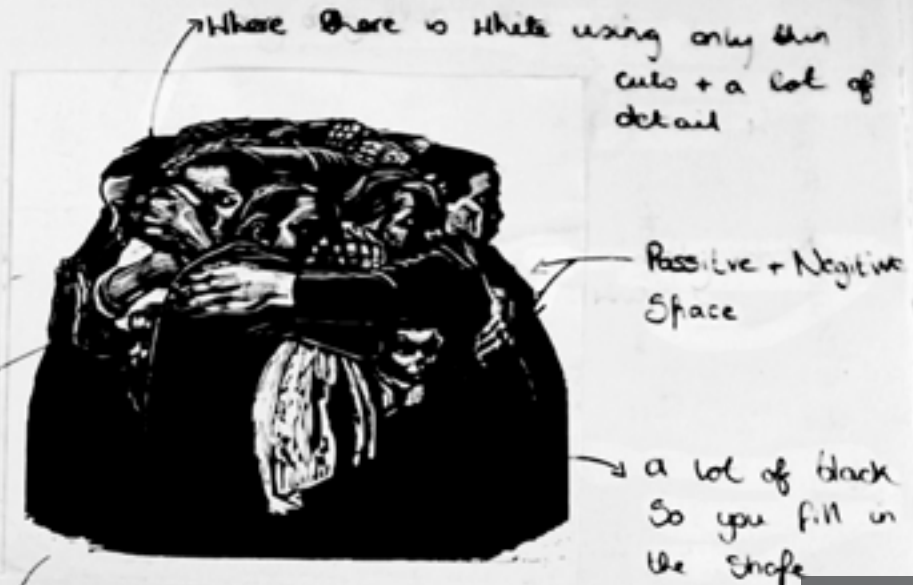 Where there is white using only thin
cuts + a lot of
detail
Possitve + Negitive
Space
a lot of black
So you fill in
the shape